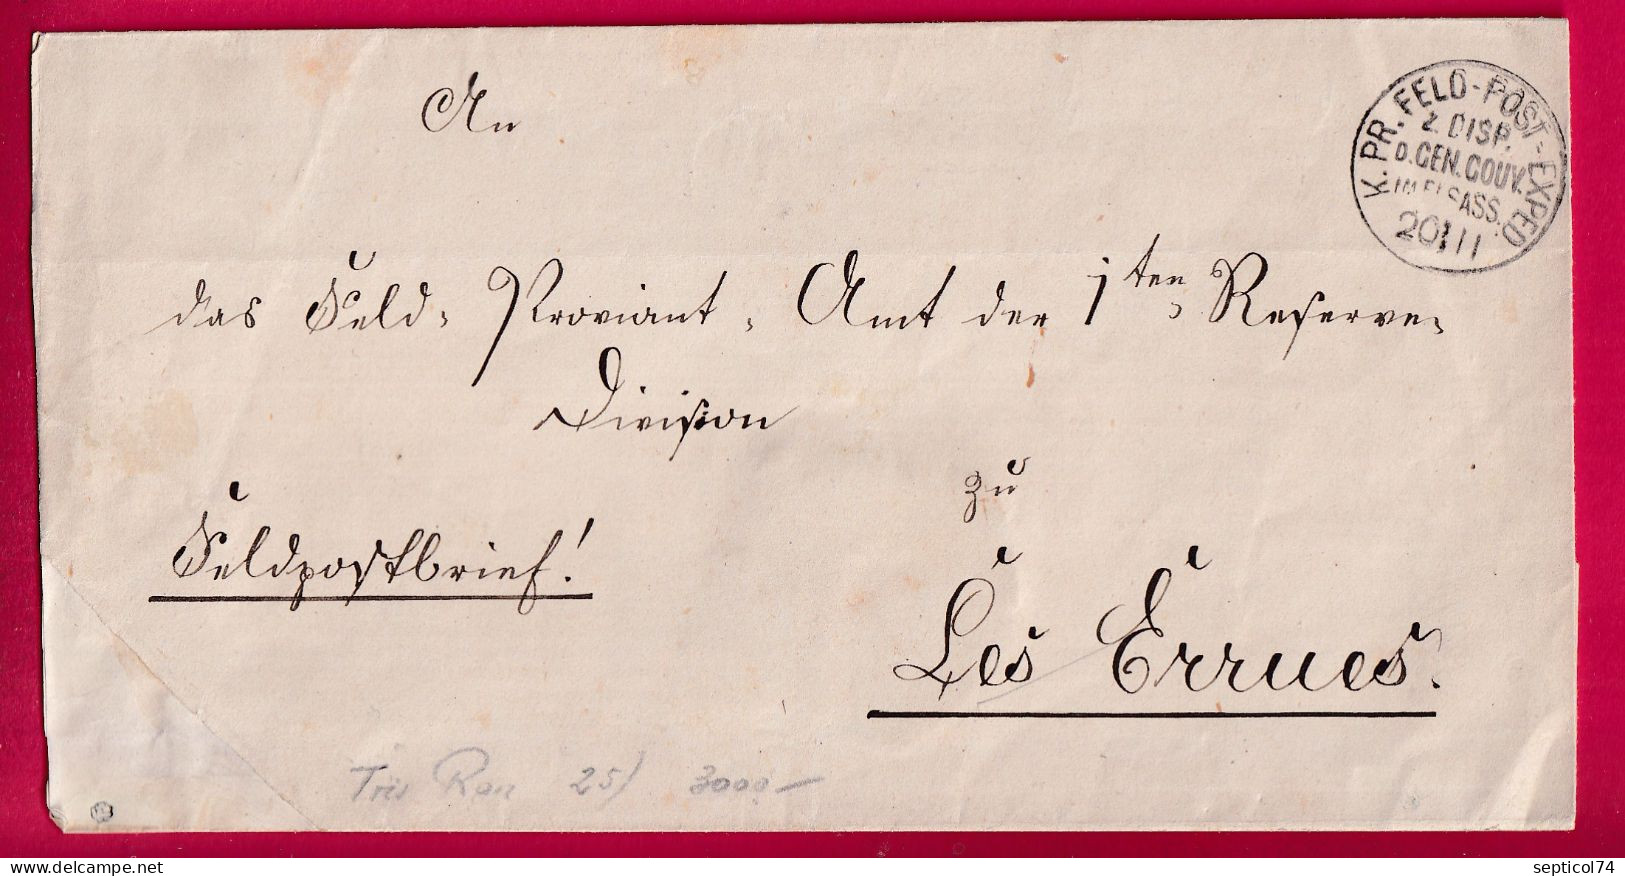 An
K. PR. FELD-POST-EXPED
Z. DISP.
D. GEN. GOUV.
IM ELSASS.
20 11
das Feld-Proviant-Amt der 1ten Reserve-
Division
zu
Feldpostbrief!
Les Errues.
25) 3000-
delcampe.net
septicol74